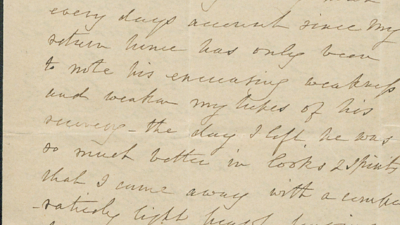 every days account since my
return hence has only been
to note his encreasing weakness
and weaken my hopes of his
recovery - the day I left, he was
so much better in looks & spirits
that I came away with a compa
-ratively light heart